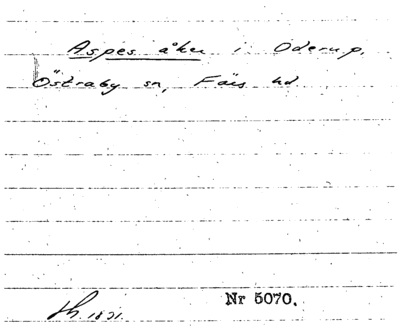 Aspes åker i Oderup,
Östraby sn, Färs hd
Nr 5070.